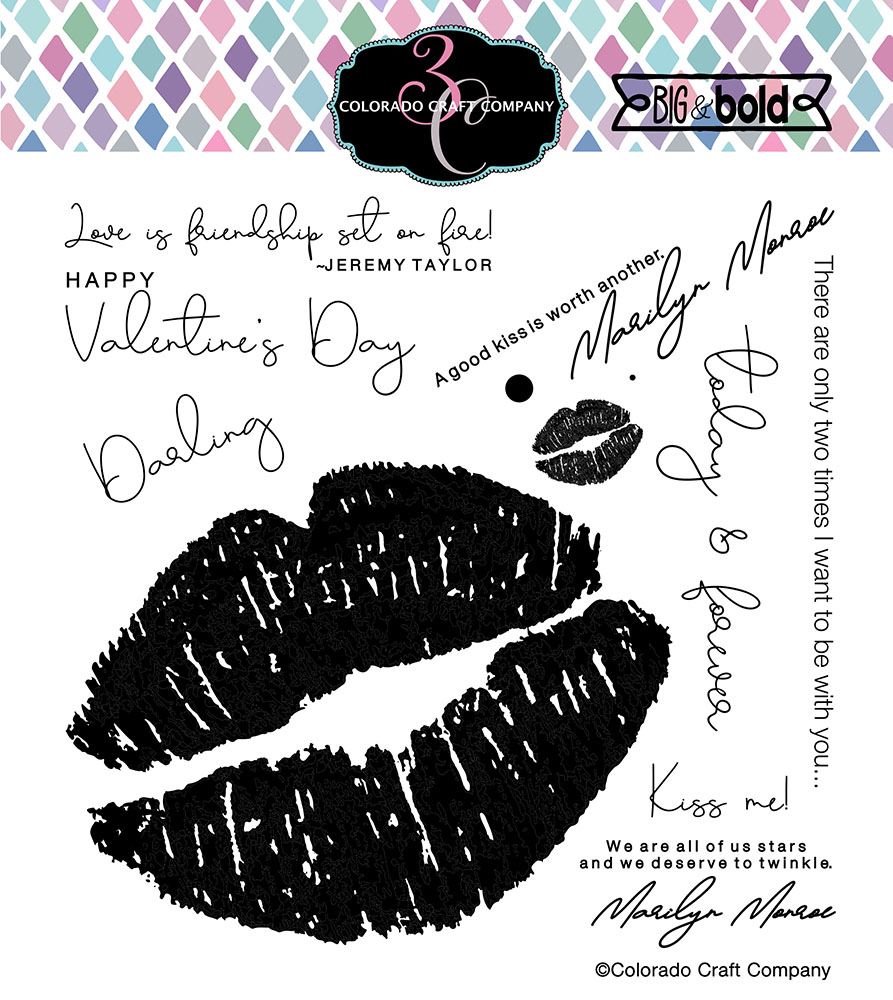 3C
COLORADO CRAFT COMPANY
BIG & bold
Love is friendship set on fire!
~JEREMY TAYLOR
HAPPY
Valentine's Day
Darling
A good kiss is worth another.
Marilyn Monroe
There are only two times I want to be with you...
today & forever
Kiss me!
We are all of us stars
and we deserve to twinkle.
Marilyn Monroe
©Colorado Craft Company